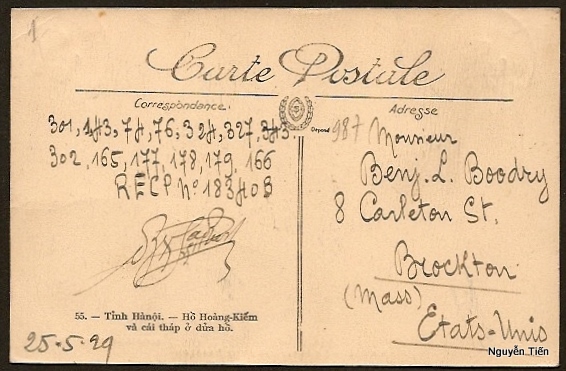 1
Carte Postale
Correspondance.
Adresse
301, 143, 74, 76, 324, 327, 343.
302, 165, 177, 178, 179, 166
RECP Nº 18340B
Déposé
987
Monsieur
Benj. L. Boodry
8 Carleton St.
Brockton
(Mass)
Etats-Unis
55. — Tỉnh Hànội. — Hồ Hoàng-Kiếm
và cái tháp ở dửa hồ.
25-5-29
Nguyễn Tiến